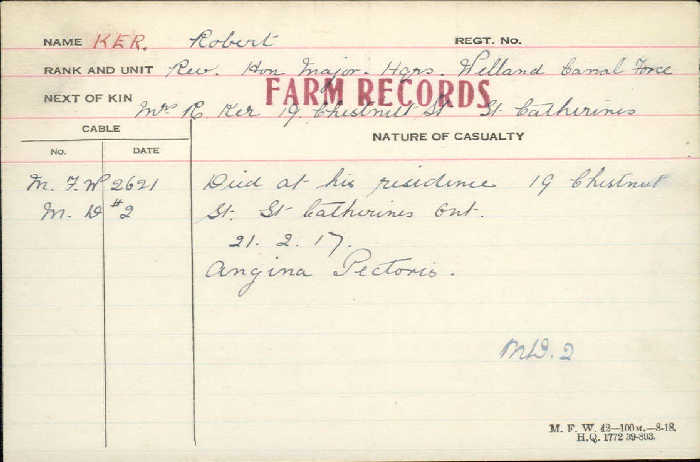 NAME KER. Robert REGT. No.
RANK AND UNIT Rev. Hon Major. Hqrs. Welland Canal Force
FARM RECORDS
NEXT OF KIN Mrs R Ker 19 Chestnut St St Catherines
CABLE NATURE OF CASUALTY
No. DATE
M. F. W 2621 Died at his residence 19 Chestnut
M. D #2 St. St Catherines Ont.
21. 2. 17.
Angina Pectoris.
M.D. 2
M. F. W. 42—100 M.—8-18.
H.Q. 1772 39-893.